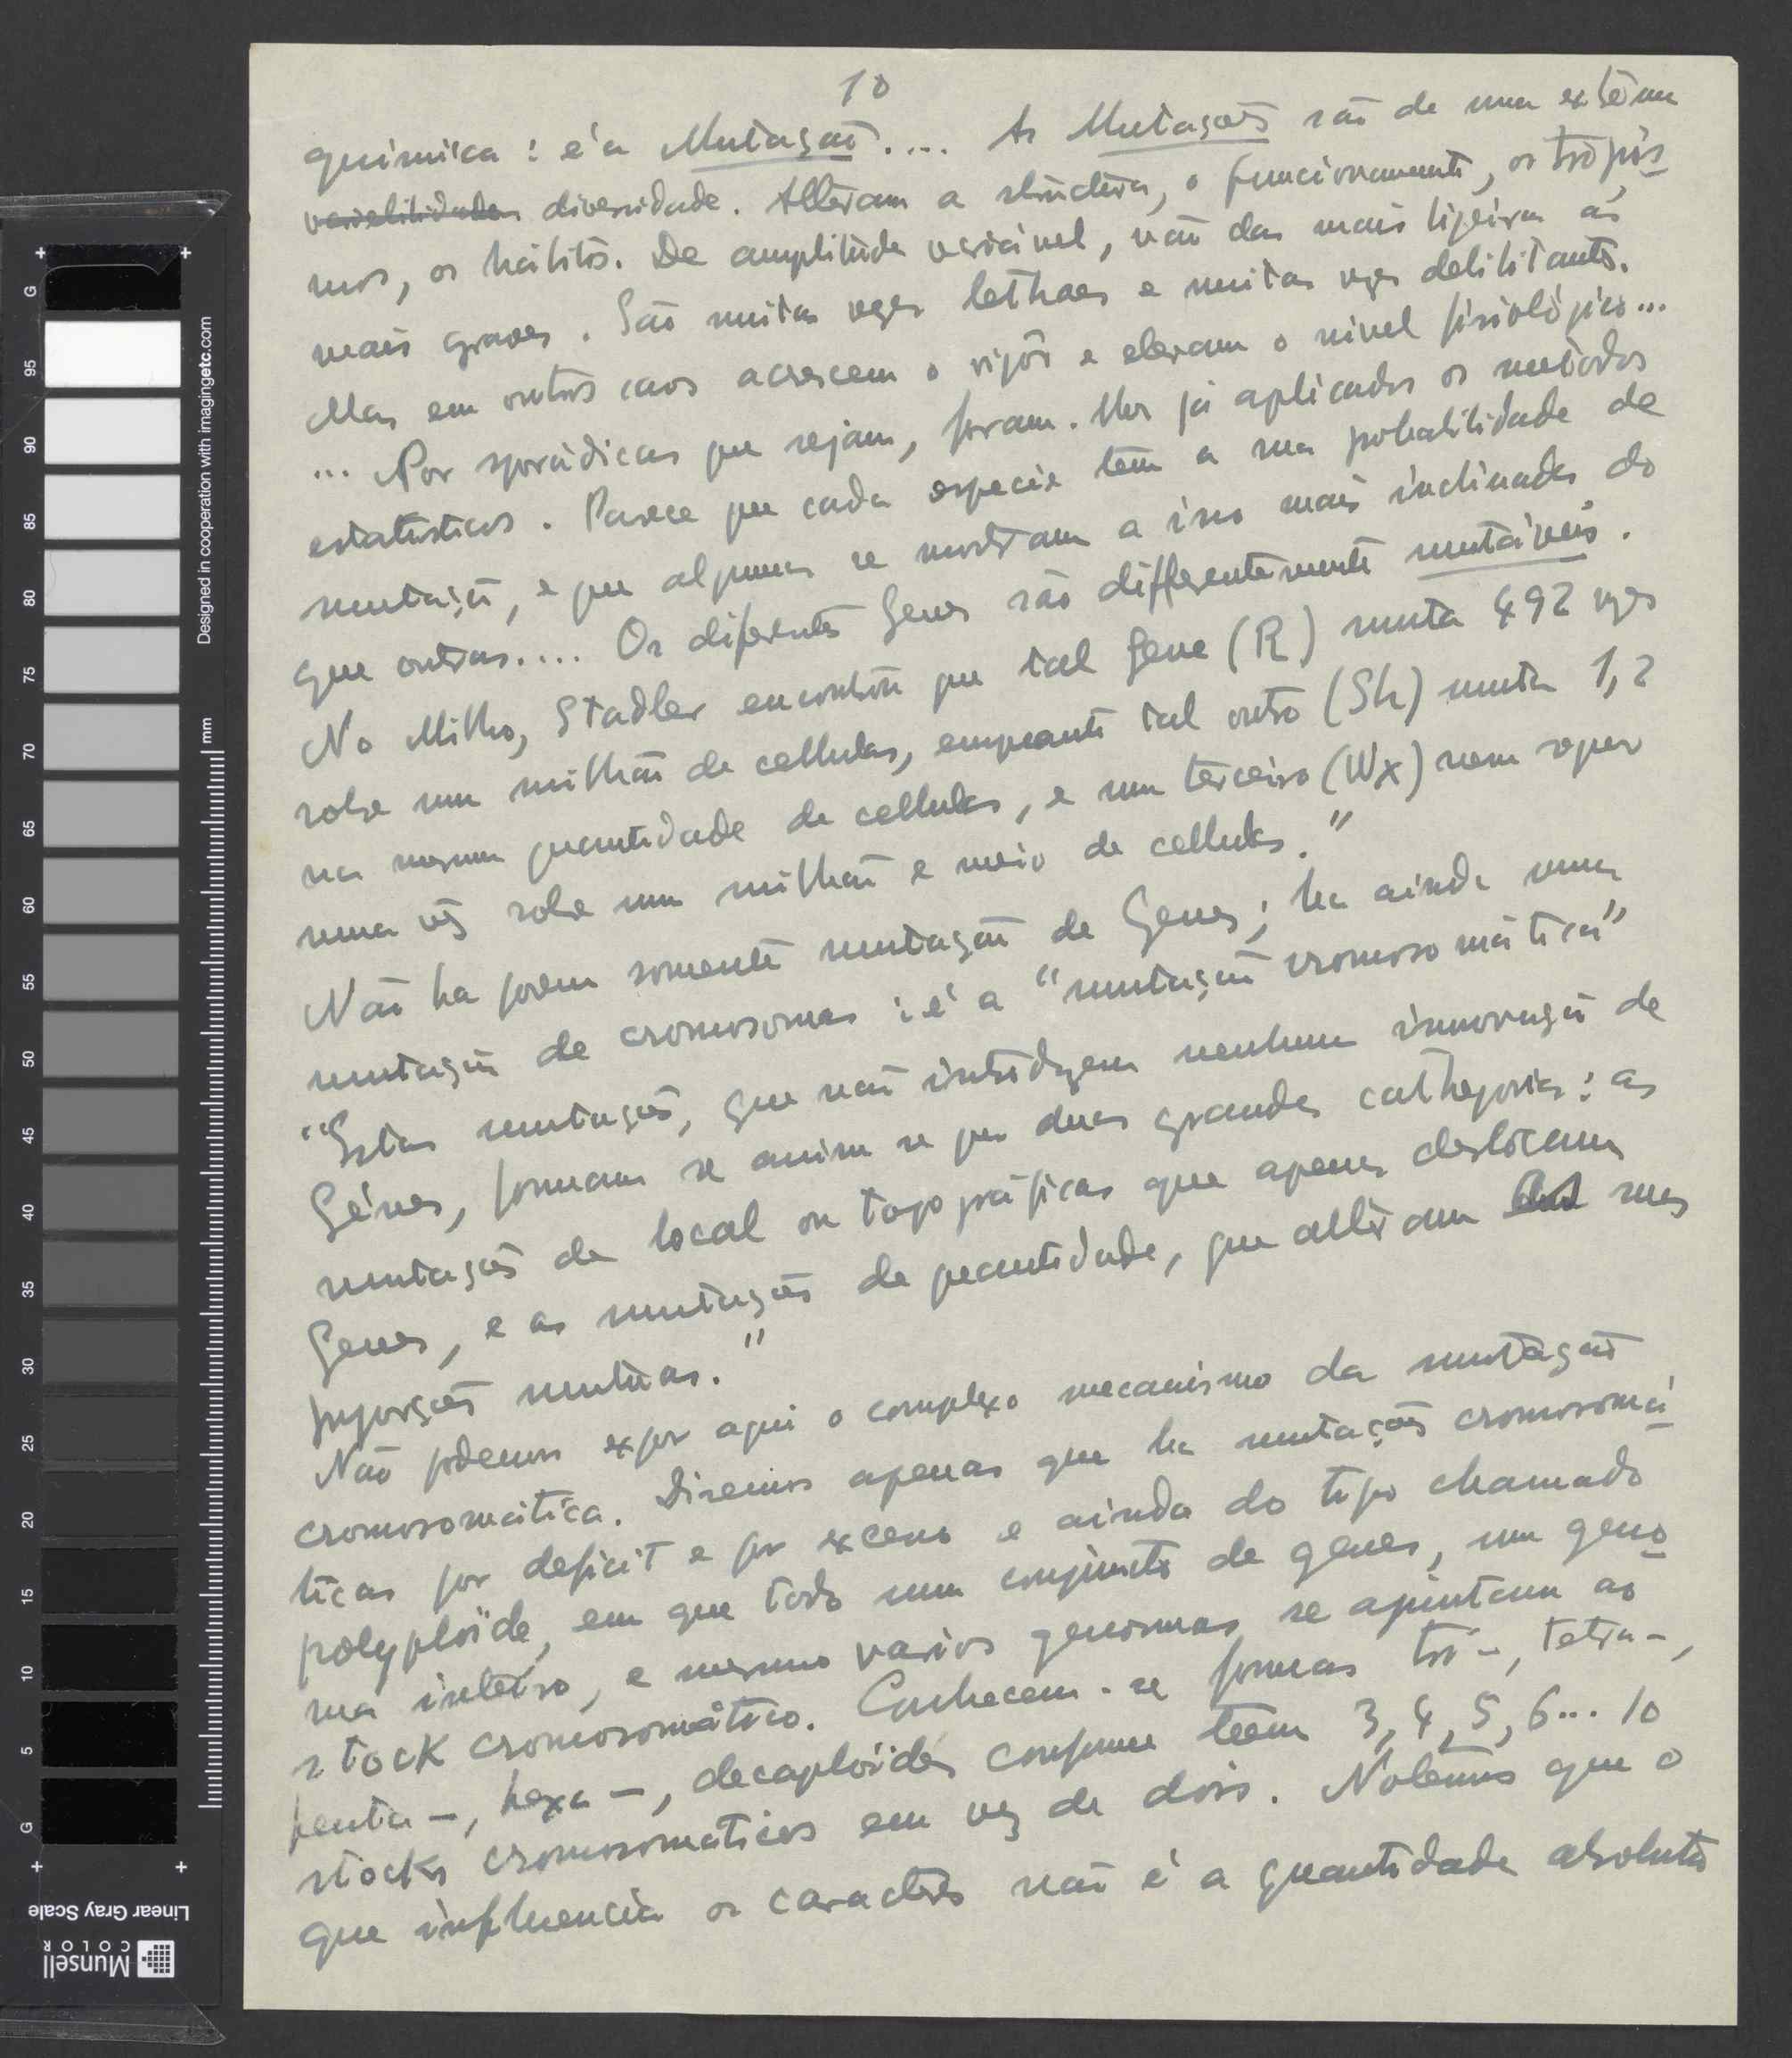 10
química: é a Mutação.... As Mutações são de uma extrema
variabilidades diversidade. Alteram a structura, o funcionamento, os tropis
mos, os hábitos. De amplitude variável, vão das mais ligeiras ás
mais graves. São muitas vezes lethaes e muitas vezes debilitantes.
Mas em outros casos acrescem o vigôr e elevam o nivel fisiológico...
... Por sporádicas que sejam, foram-lhes já aplicados os metodos
estatisticos. Parece que cada especie tem a sua probabilidade de
mutação, e que algumas se mostram a isso mais inclinadas do
que outras.... Os diferentes Genes são differentemente mutáveis.
No Milho, Stadler encontrou que tal Gene (R) muta 492 vezes
sobre um milhão de cellulas, emquanto tal outro (Sh) muta 1,2
na mesma quantidade de cellulas, e um terceiro (Wx) nem sequer
uma vez sobre um milhão e meio de cellulas."
Não ha porem somente mutação de Genes; ha ainda uma
mutação de cromosomas: é a "mutação cromosomática"
"Estas mutações, que não introduzem nenhuma innovação de
Génes, formam se assim se quer duas grandes cathegorias: as
mutações de local ou topográficas que apenas deslocam
Genes, e as mutações de quantidade, que alteram suas
proporções mutuas."
Não podemos expor aqui o complexo mecanismo da mutação
cromosomática. Diremos apenas que ha mutações cromosomá
ticas por deficit e por excesso e ainda do tipo chamado
polyploïde, em que todo um conjunto de genes, um geno
ma inteiro, e mesmo varios genomas se ajuntam ao
stock cromosomático. Conhecem-se formas tri-, tetra-,
penta-, hexa-, decaploïdes conforme teem 3, 4, 5, 6... 10
stocks cromosomaticos em vez de dois. Notemos que o
que influencia os caractéres não é a quantidade absoluta
G
95
90
85
80
75
70
65
60
55
50
45
40
35
30
25
20
15
10
5
G
Designed in cooperation with imagingetc.com
mm
Linear Gray Scale
Munsell
COLOR